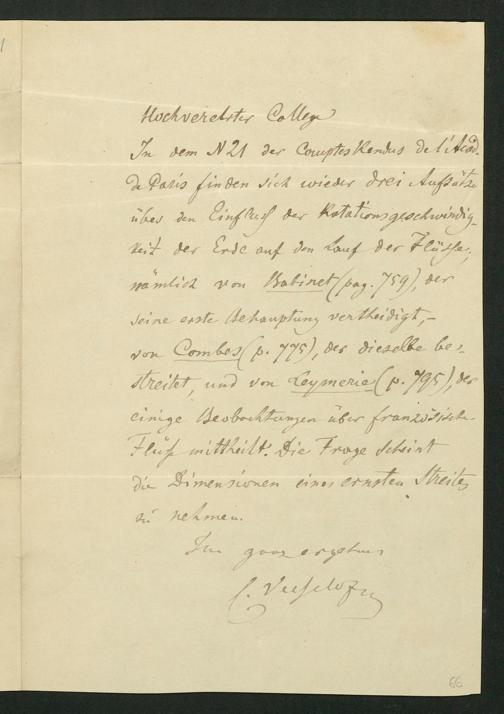 Hochverehrter College
In dem N 21 der Comptes Rendus de l'Acad.
de Paris finden sich wieder drei Aufsätze
über den Einfluß der Rotationsgeschwindig-
keit der Erde auf den Lauf der Flüsse,
nämlich von Babinet (pag. 759), der
seine erste Behauptung vertheidigt, –
von Combes (p. 775), der dieselbe be-
streitet, und von Leymerie (p. 795), der
einige Beobachtungen über französische
Flüß mittheilt. Die Frage scheint
die Dimensionen eines ernsten Streites
zu nehmen.
Ihr ganz ergebens
C.
66